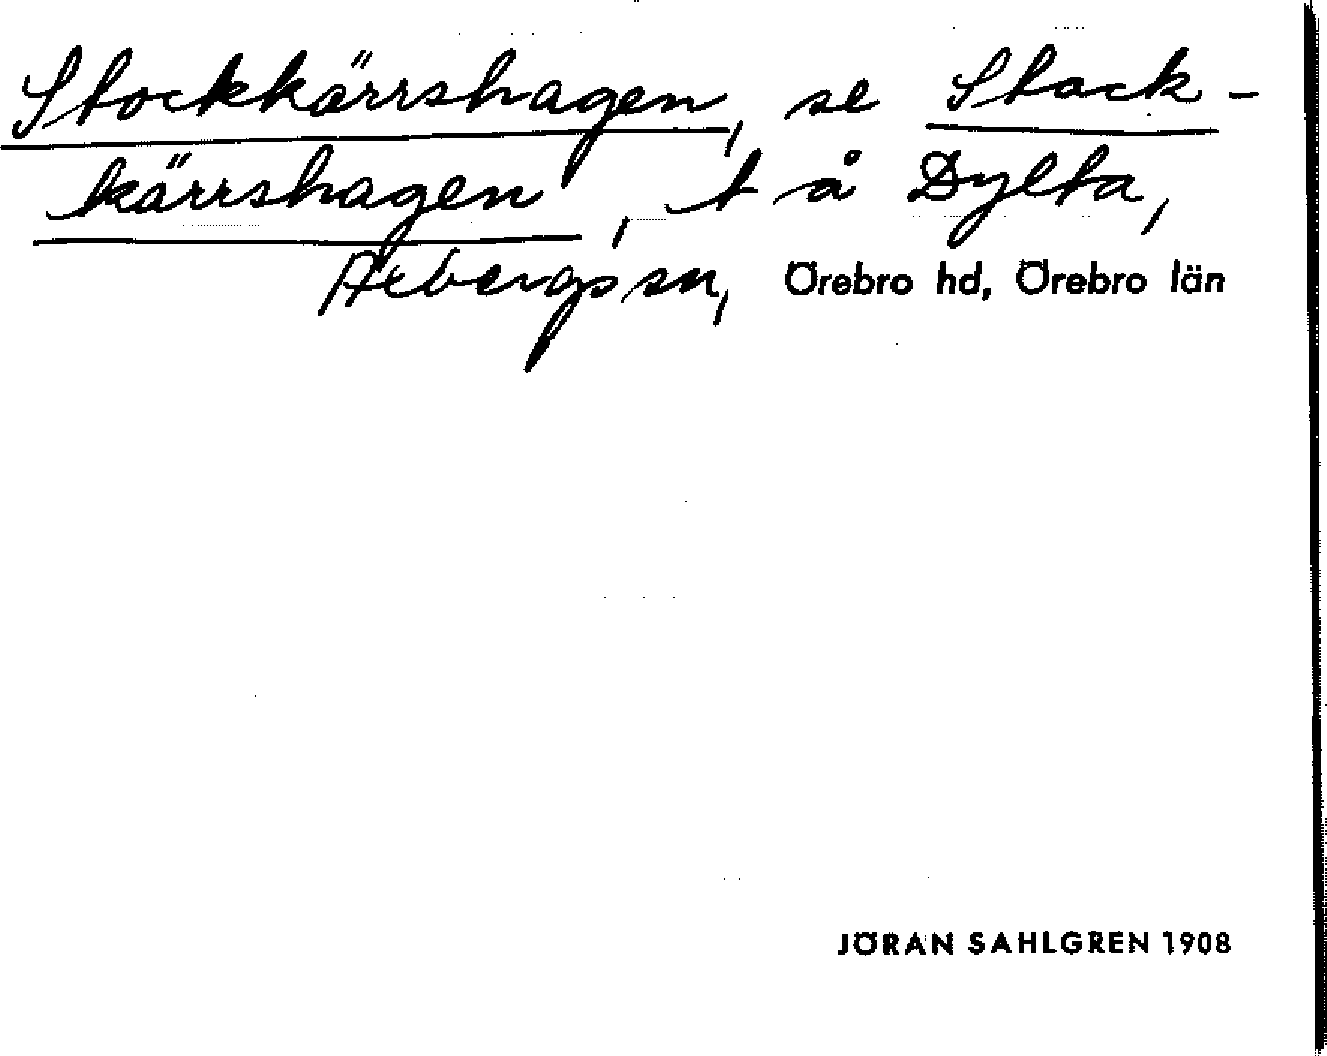 Stockkärrshagen, se Stack-
kärrshagen, t å Dylta,
Axbergs sn, Örebro hd, Örebro län
JÖRAN SAHLGREN 1908